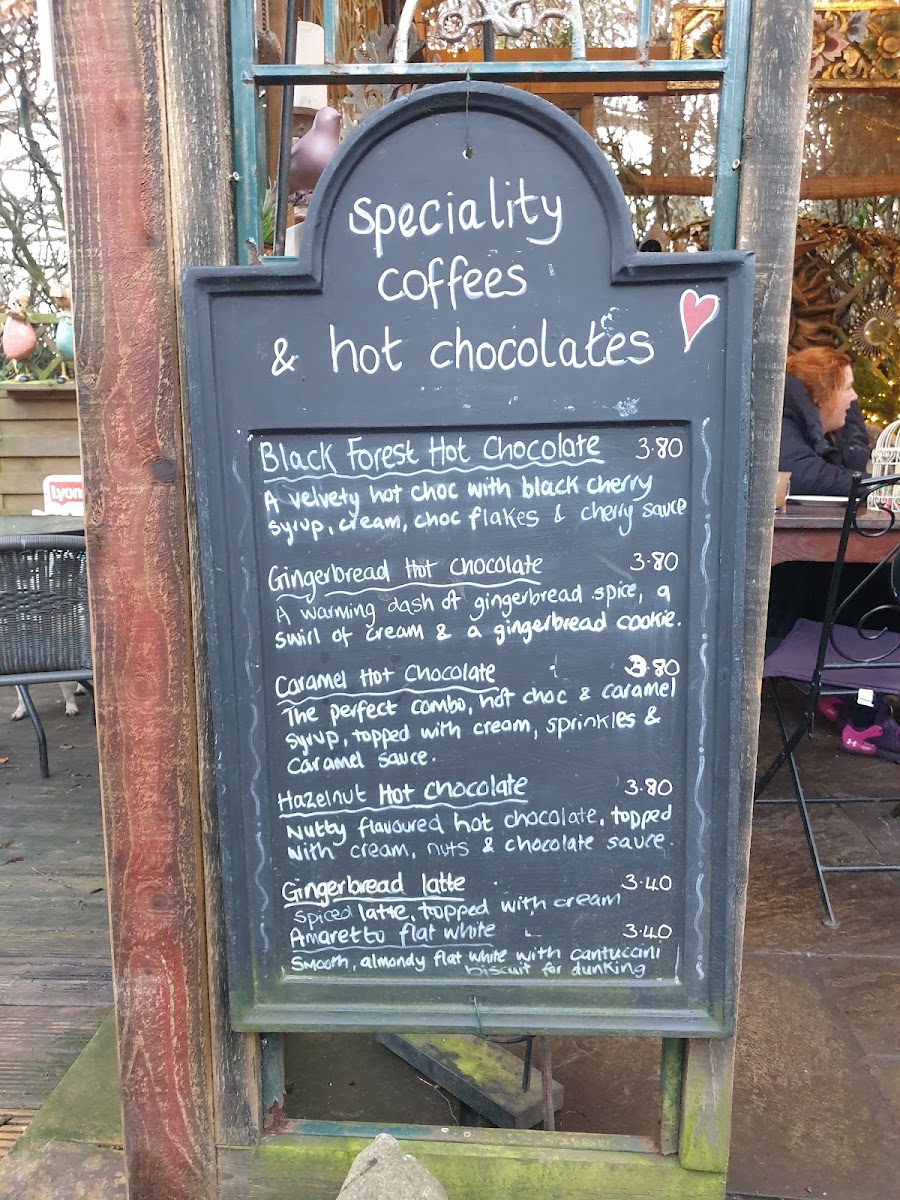 speciality
coffees
& hot chocolates
Black Forest Hot Chocolate 3.80
A velvety hot choc with black cherry
syrup, cream, choc flakes & cherry sauce
Gingerbread Hot Chocolate 3.80
A warming dash of gingerbread spice, a
swirl of cream & a gingerbread cookie.
Caramel Hot Chocolate 3.80
The perfect combo, hot choc & caramel
syrup, topped with cream, sprinkles &
caramel sauce.
Hazelnut Hot Chocolate 3.80
Nutty flavoured hot chocolate, topped
with cream, nuts & chocolate sauce.
Gingerbread latte 3.40
Spiced latte, topped with cream
Amaretto flat white 3.40
Smooth, almondy flat white with cantuccini
biscuit for dunking
Lyons